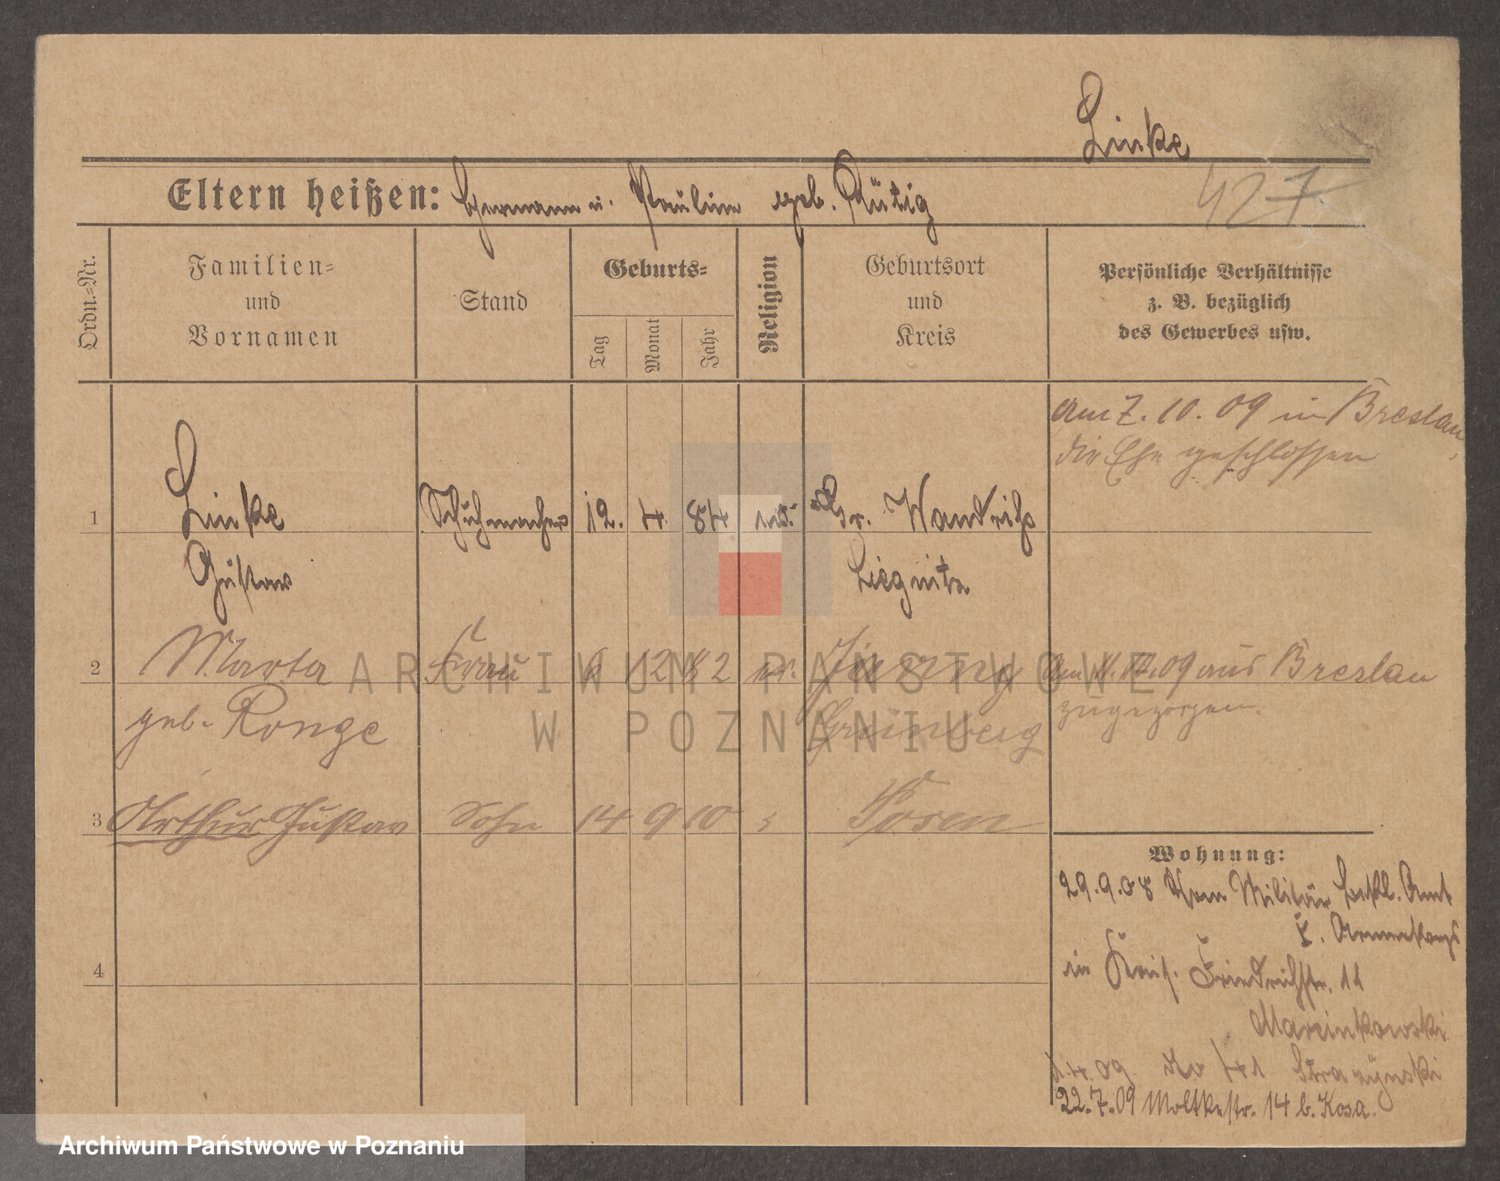 Linke
427
Eltern heißen: Hermann u. Pauline geb. Rüdig
Ordn.=Nr.
Familien=
und
Vornamen
Stand
Geburts=
Tag
Monat
Jahr
Religion
Geburtsort
und
Kreis
Persönliche Verhältnisse
z. B. bezüglich
des Gewerbes usw.
am 7. 10. 09 in Breslau
die Ehe geschlossen
1 Linke Schuhmacher 12. 4. 84 Gr. Wandriß
Gustav Liegnitz
2 Marta Frau 12 82 09 aus Breslau
geb. Ronge Grünberg zugezogen.
3 Arthur Gustav Sohn 14 9 10 Posen
4
Wohnung:
29.9.08 Militär Amt
in Kais. Friedrichstr. 11
Marcinkowski
1.4.09. do Strazynski
22.7.09 Moltkestr. 14 b. Kosa.
ARCHIWUM PAŃSTWOWE
W POZNANIU
Archiwum Państwowe w Poznaniu